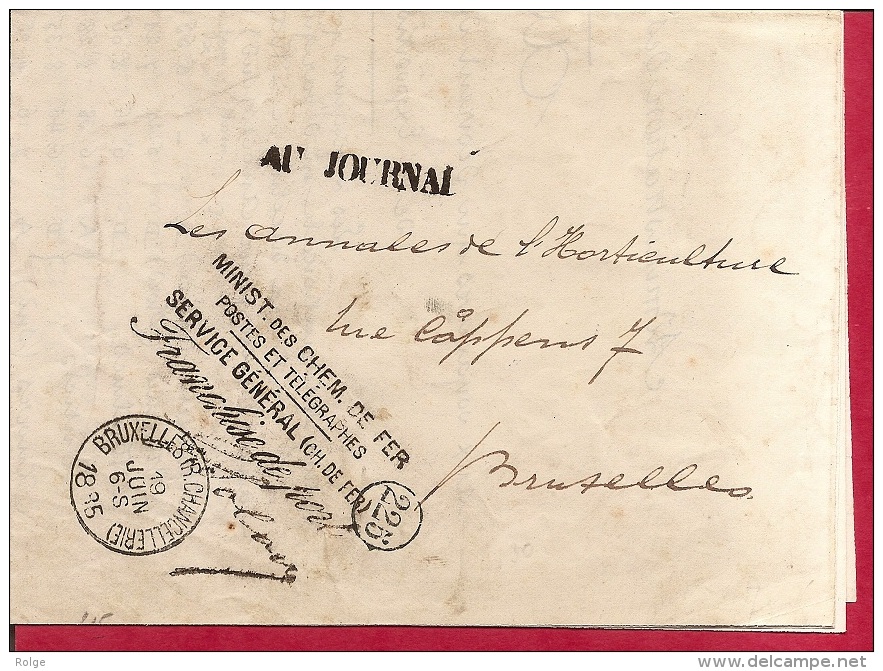 AU JOURNAL
Les annales de l'Horticulture
rue Coppens 7
Bruxelles
MINIST. DES CHEM. DE FER
POSTES ET TÉLÉGRAPHES
SERVICE GÉNÉRAL (CH. DE FER)
Franchise de port
225
BRUXELLES (R. CHANCELLERIE)
19
JUIN
6-S
1895
Rolge
www.delcampe.net